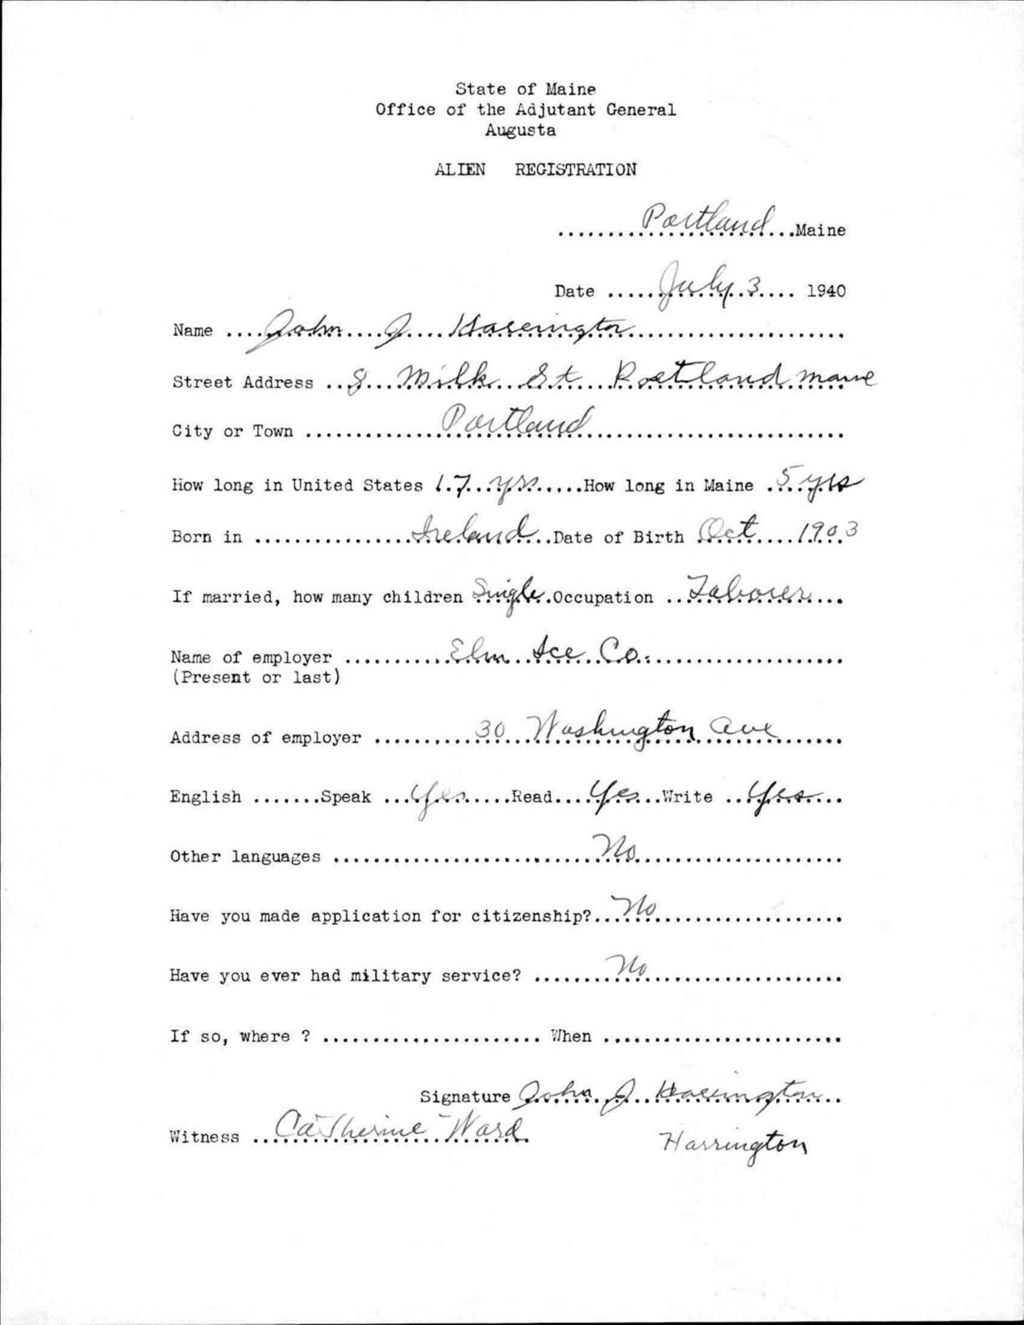 State of Maine
Office of the Adjutant General
Augusta
ALIEN REGISTRATION
........Portland...Maine
Date .....July 3.... 1940
Name ....John....J....Harrington.................
Street Address ..8...Milk...St....Portland.maine
City or Town ..............Portland..........................
How long in United States 17...yrs.....How long in Maine .5 yrs
Born in ................Ireland..Date of Birth Oct....1903
If married, how many children Single.Occupation ..Laborer...
Name of employer ...........Elm...Ice..Co......................
(Present or last)
Address of employer ...........30..Washington Ave.......
English .......Speak ...Yes.....Read....Yes...Write ..Yes....
Other languages ..........................No.....................
Have you made application for citizenship?...No....................
Have you ever had military service? ........No....................
If so, where ? ...................... When ........................
Signature John..J..Harrington..
Witness ..Catherine Ward
Harrington